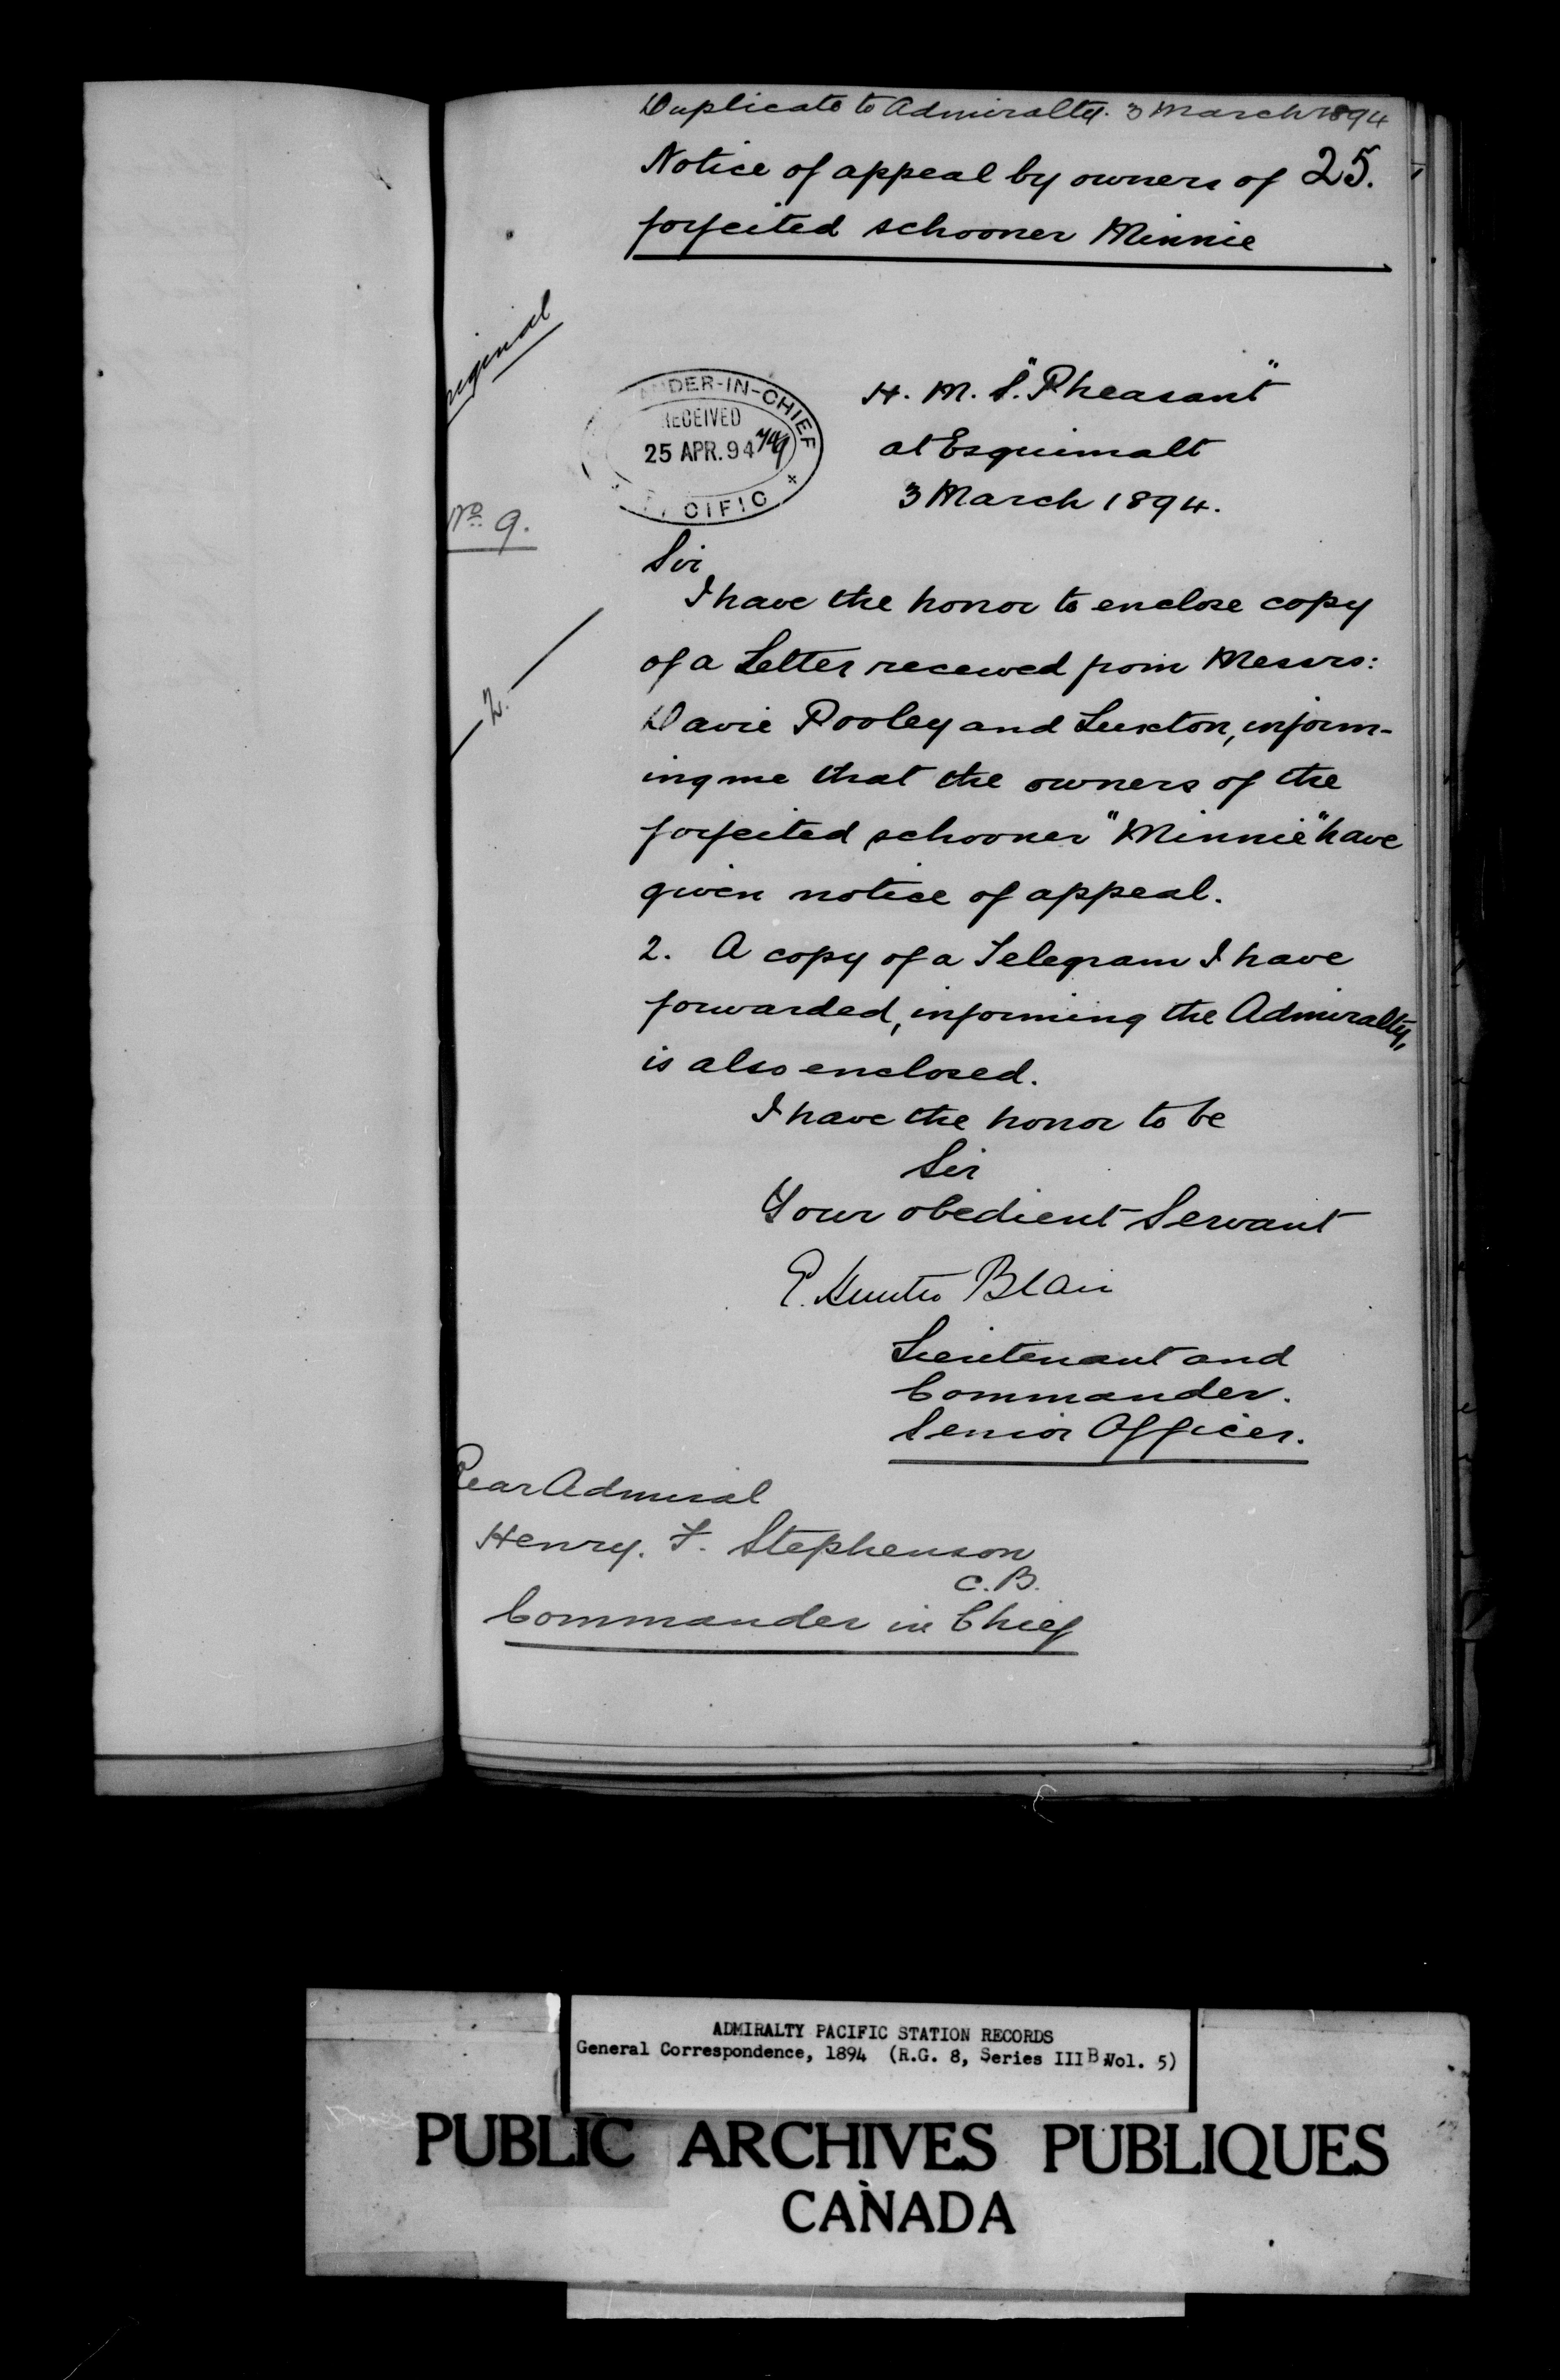 Duplicate to Admiralty. 3 March 1894
Notice of appeal by owners of 25.
forfeited schooner Minnie
riginal
ANDER-IN-CHIEF
RECEIVED
25 APR. 94
CIFIC
H. M. S. "Pheasant"
at Esquimalt
3 March 1894.
No. 9.
Sir
I have the honor to enclose copy
of a Letter received from Messrs:
2.
Davie Pooley and Luxton, inform-
ing me that the owners of the
forfeited schooner "Minnie" have
given notice of appeal.
2. A copy of a Telegram I have
forwarded, informing the Admiralty,
is also enclosed.
I have the honor to be
Sir
Your obedient Servant
E. Hunter Blair
Lieutenant and
Commander.
Senior Officer.
Rear Admiral
Henry. F. Stephenson
C.B.
Commander in Chief
ADMIRALTY PACIFIC STATION RECORDS
General Correspondence, 1894 (R.G. 8, Series III B Vol. 5)
PUBLIC ARCHIVES PUBLIQUES
CANADA